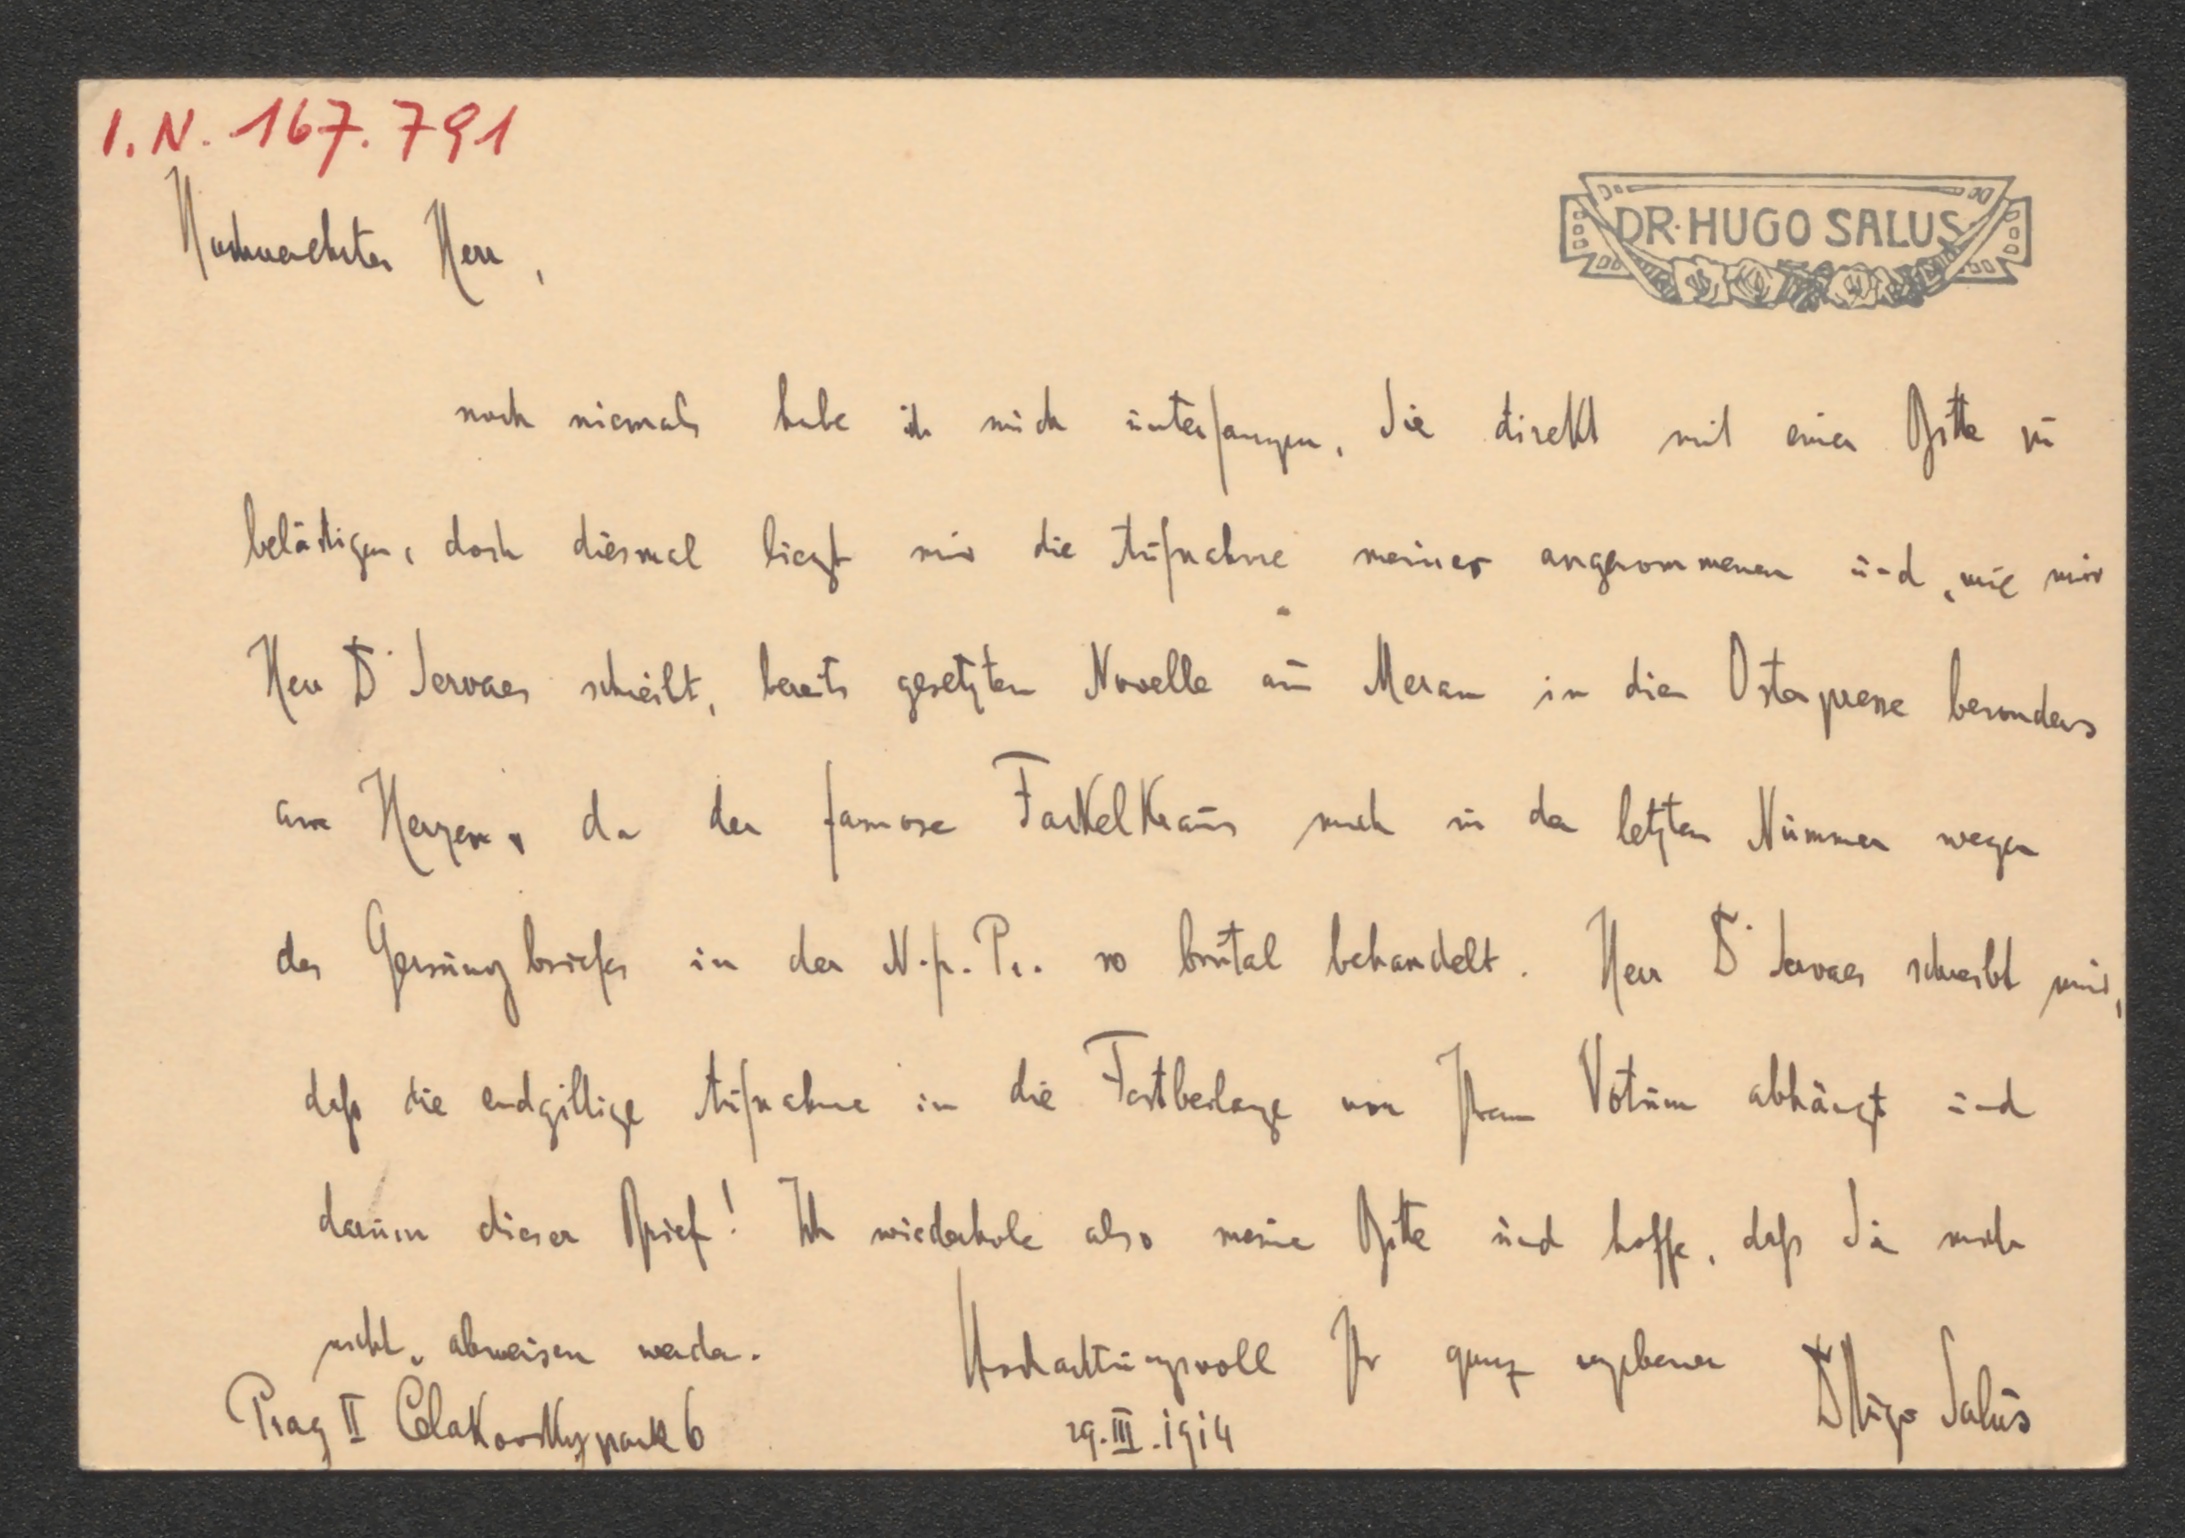 I.N. 167.791
DR. HUGO SALUS
Hochverehrter Herr,
noch niemals habe ich mich unterfangen, Sie direkt mit einer Bitte zu
belästigen, doch diesmal liegt mir die Aufnahme meiner angenommenen und, wie mir
Herr Dr Servaes schreibt, bereits gesetzten Novelle aus Meran in die Osterpresse besonders
am Herzen, da der famose Fackelkraus mich in der letzten Nummer wegen
des Gersungbriefes in der N. fr. Pr. so brutal behandelt. Herr Dr Servaes schreibt mir,
daß die endgiltige Aufnahme in die Festbeilage von Ihrem Votum abhängt und
darum dieser Brief! Ich wiederhole also meine Bitte und hoffe, daß Sie mich
nicht abweisen werden. Hochachtungsvoll Ihr ganz ergebener DHugo Salus
Prag II Celakovskypark 6 29.III.1914